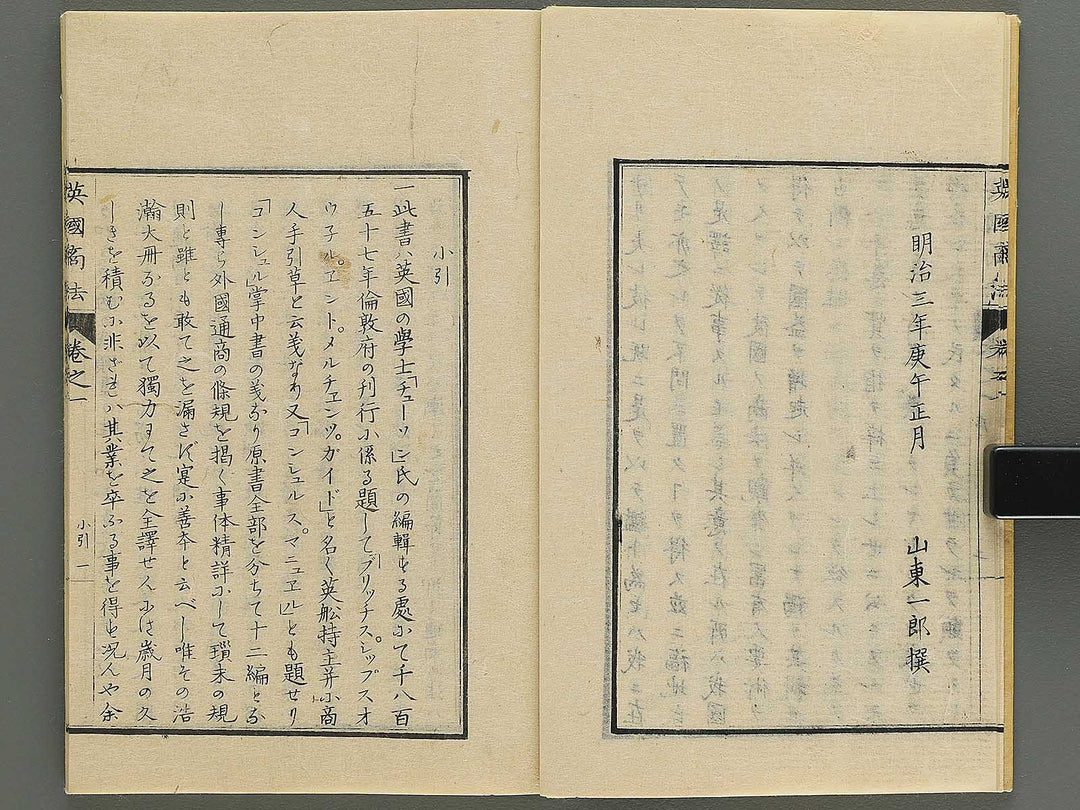 明治三年庚午正月　山東一郎撰
小引
一此書ハ英國の學士「チューソン」氏の編輯する處にて千八百
五十七年倫敦府の刊行に係る題して「ブリッチス。シップスオ
ウ子ル。エント。メルチェンツ。ガイド」と名く英舩持主并に商
人手引草と云義なり又「コンシュルス。マニュエル」とも題せり
「コンシュル」掌中書の義なり原書全部を分ちて十二編とな
し専ら外國通商の條規を掲く事体精詳にして瑣末の規
則と雖とも敢て之を漏さず寔に善本と云べし唯その浩
瀚大冊なるを以て獨力もて之を全譯せんには歳月の久
しきを積むに非ざれハ其業を卒ふる事を得ず况んや余
英國商法
卷之一
小引 一